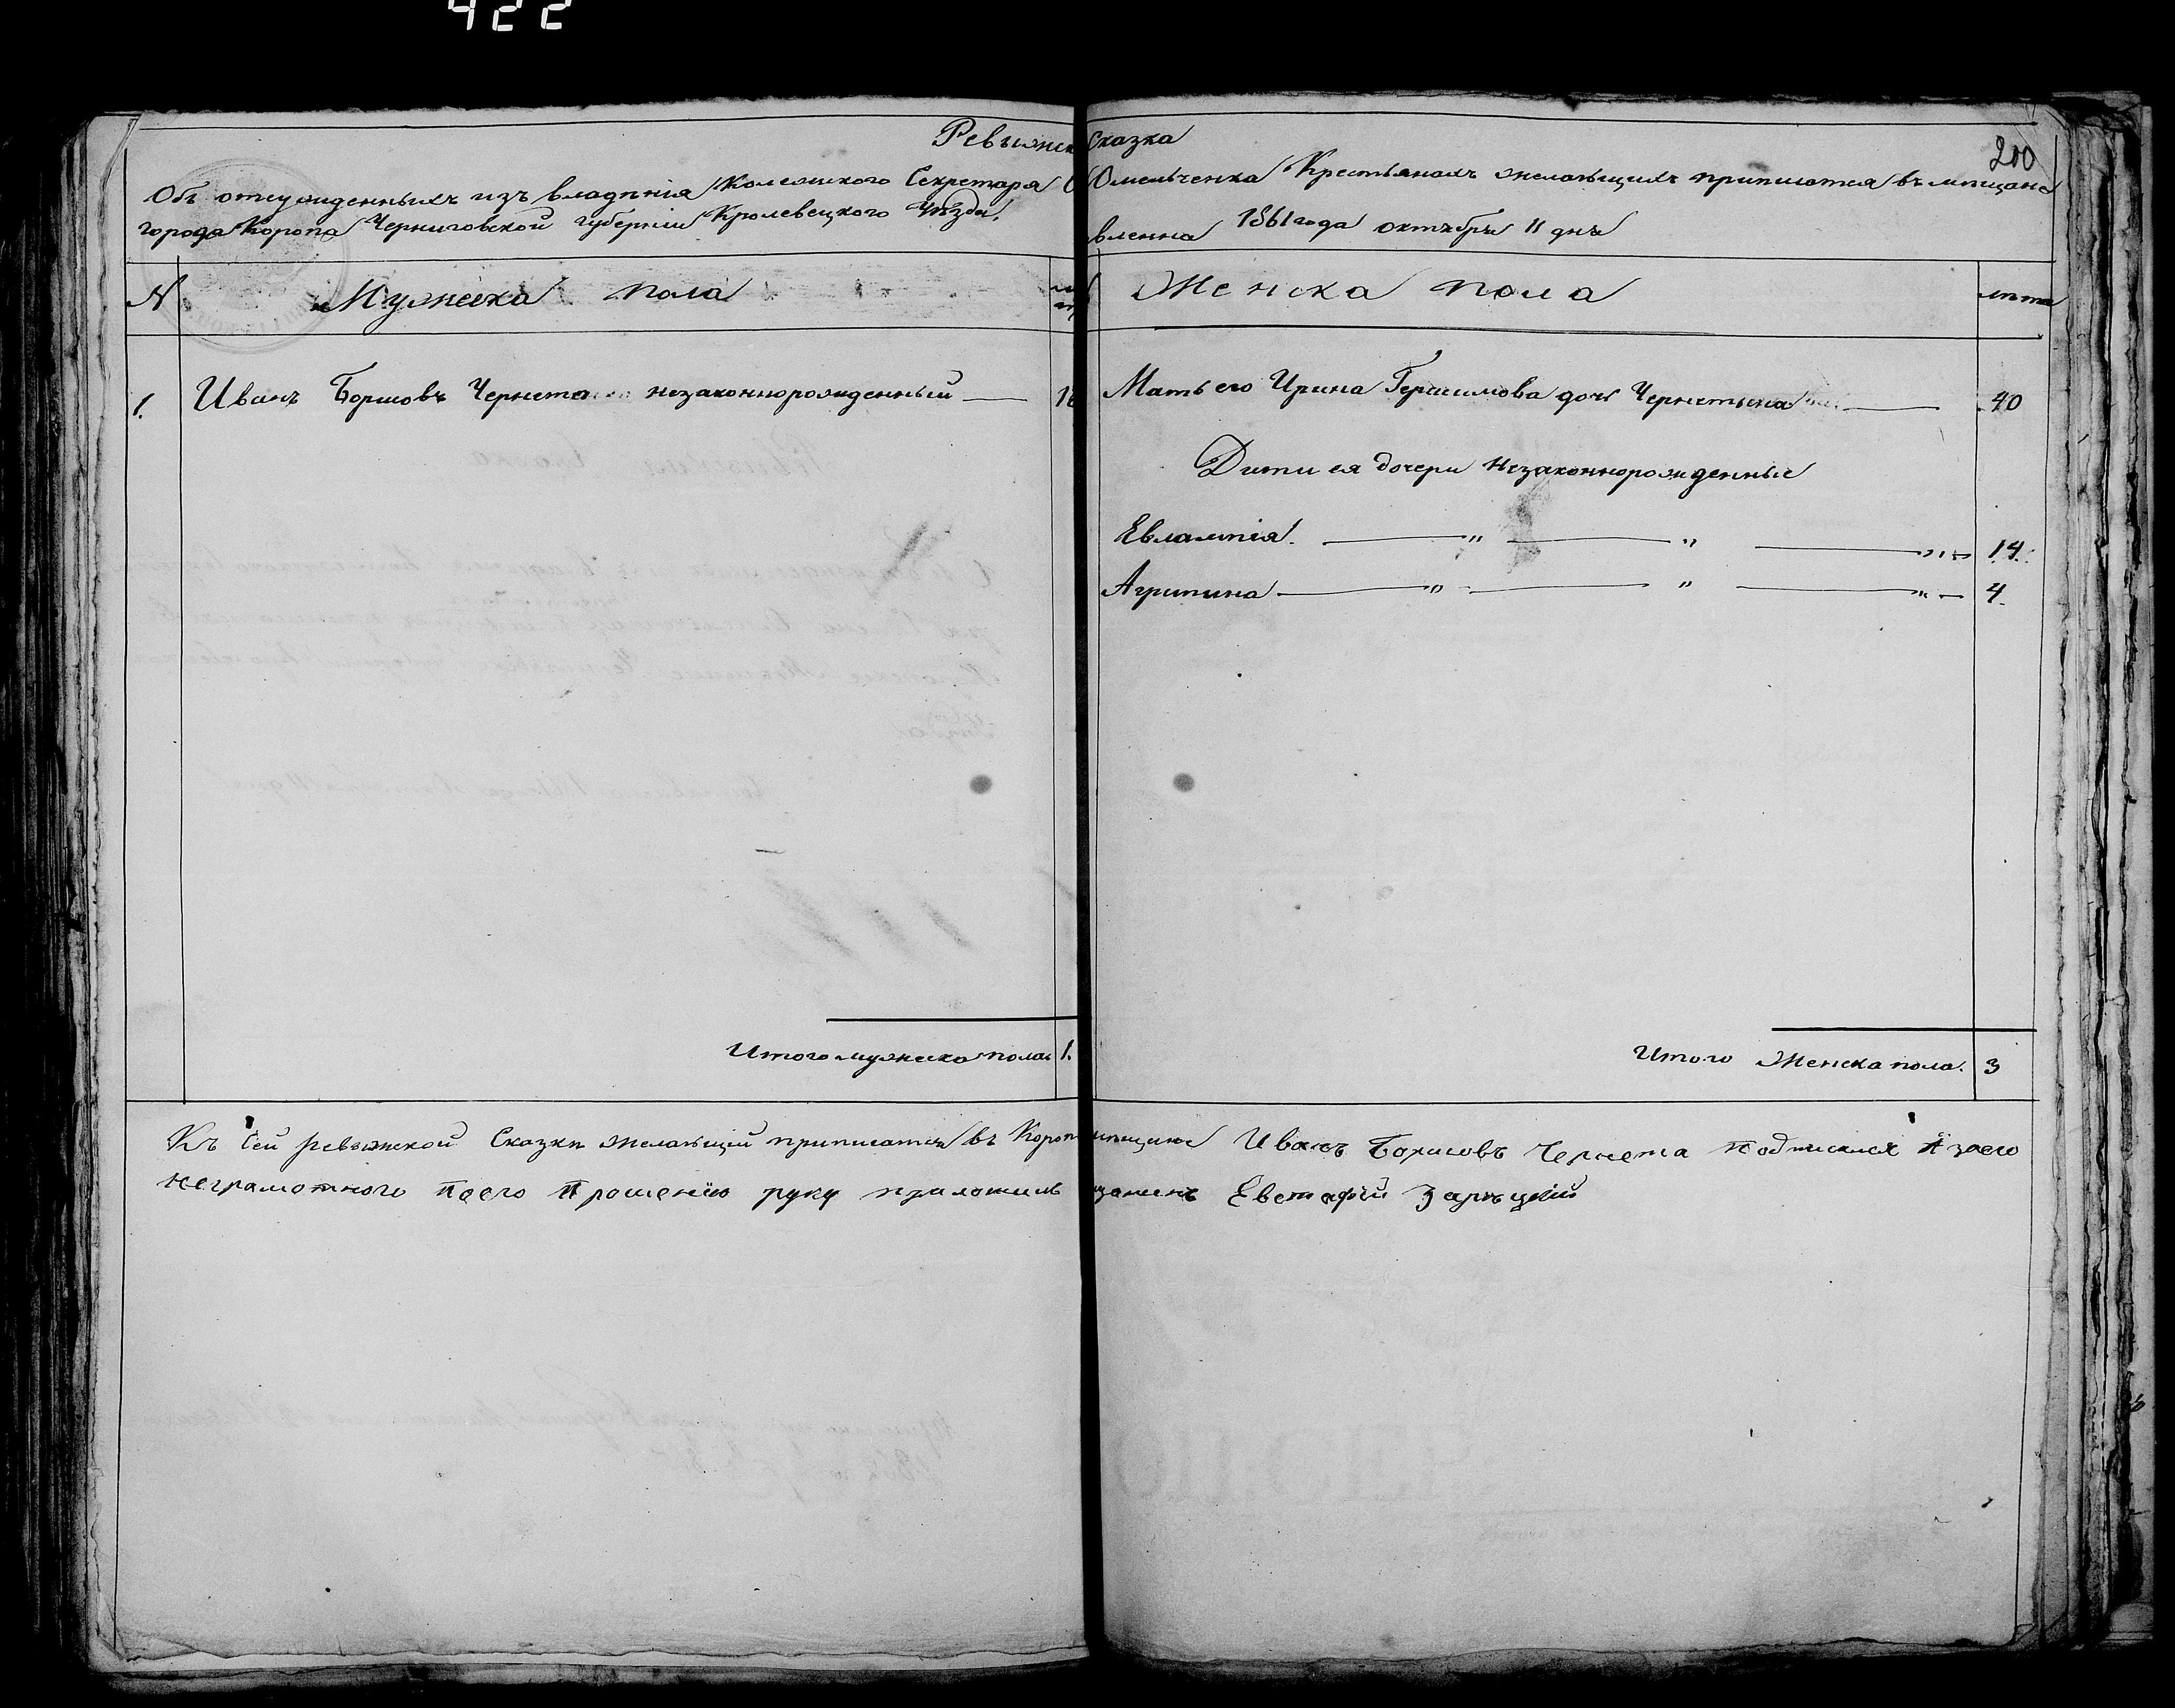 422
200
Ревыжск Сказка
Объ отсужденныхъ изъ владѣнія Колежского Секретара Омельченка Крестьянахъ желаьщихъ приписатся въ мѣщане
города Коропа Черниговской губерніи Кролевецкого Уѣзда. вленна 1861 года октября 11 дня
N Мужеска пола Женска пола лѣта
1. Иванъ Борисовъ Чернета незаконнорожденный — Мать его Ирина Герасимова дочь Чернетына — 40
Дити ея дочери незаконнорожденные
Евлампія. — " — " — " — 14.
Агрипина — " — " — " — 4.
Итого мужеска пола 1. Итого Женска пола. 3
Къ сей ревыжской Сказки желаьщий приписатся въ Короп мѣщане Иванъ Борисовъ Чернета Подписался А заего
неграмотного Поего Прошению руку приложилъ щанинъ Евстафий Зарѣцкий